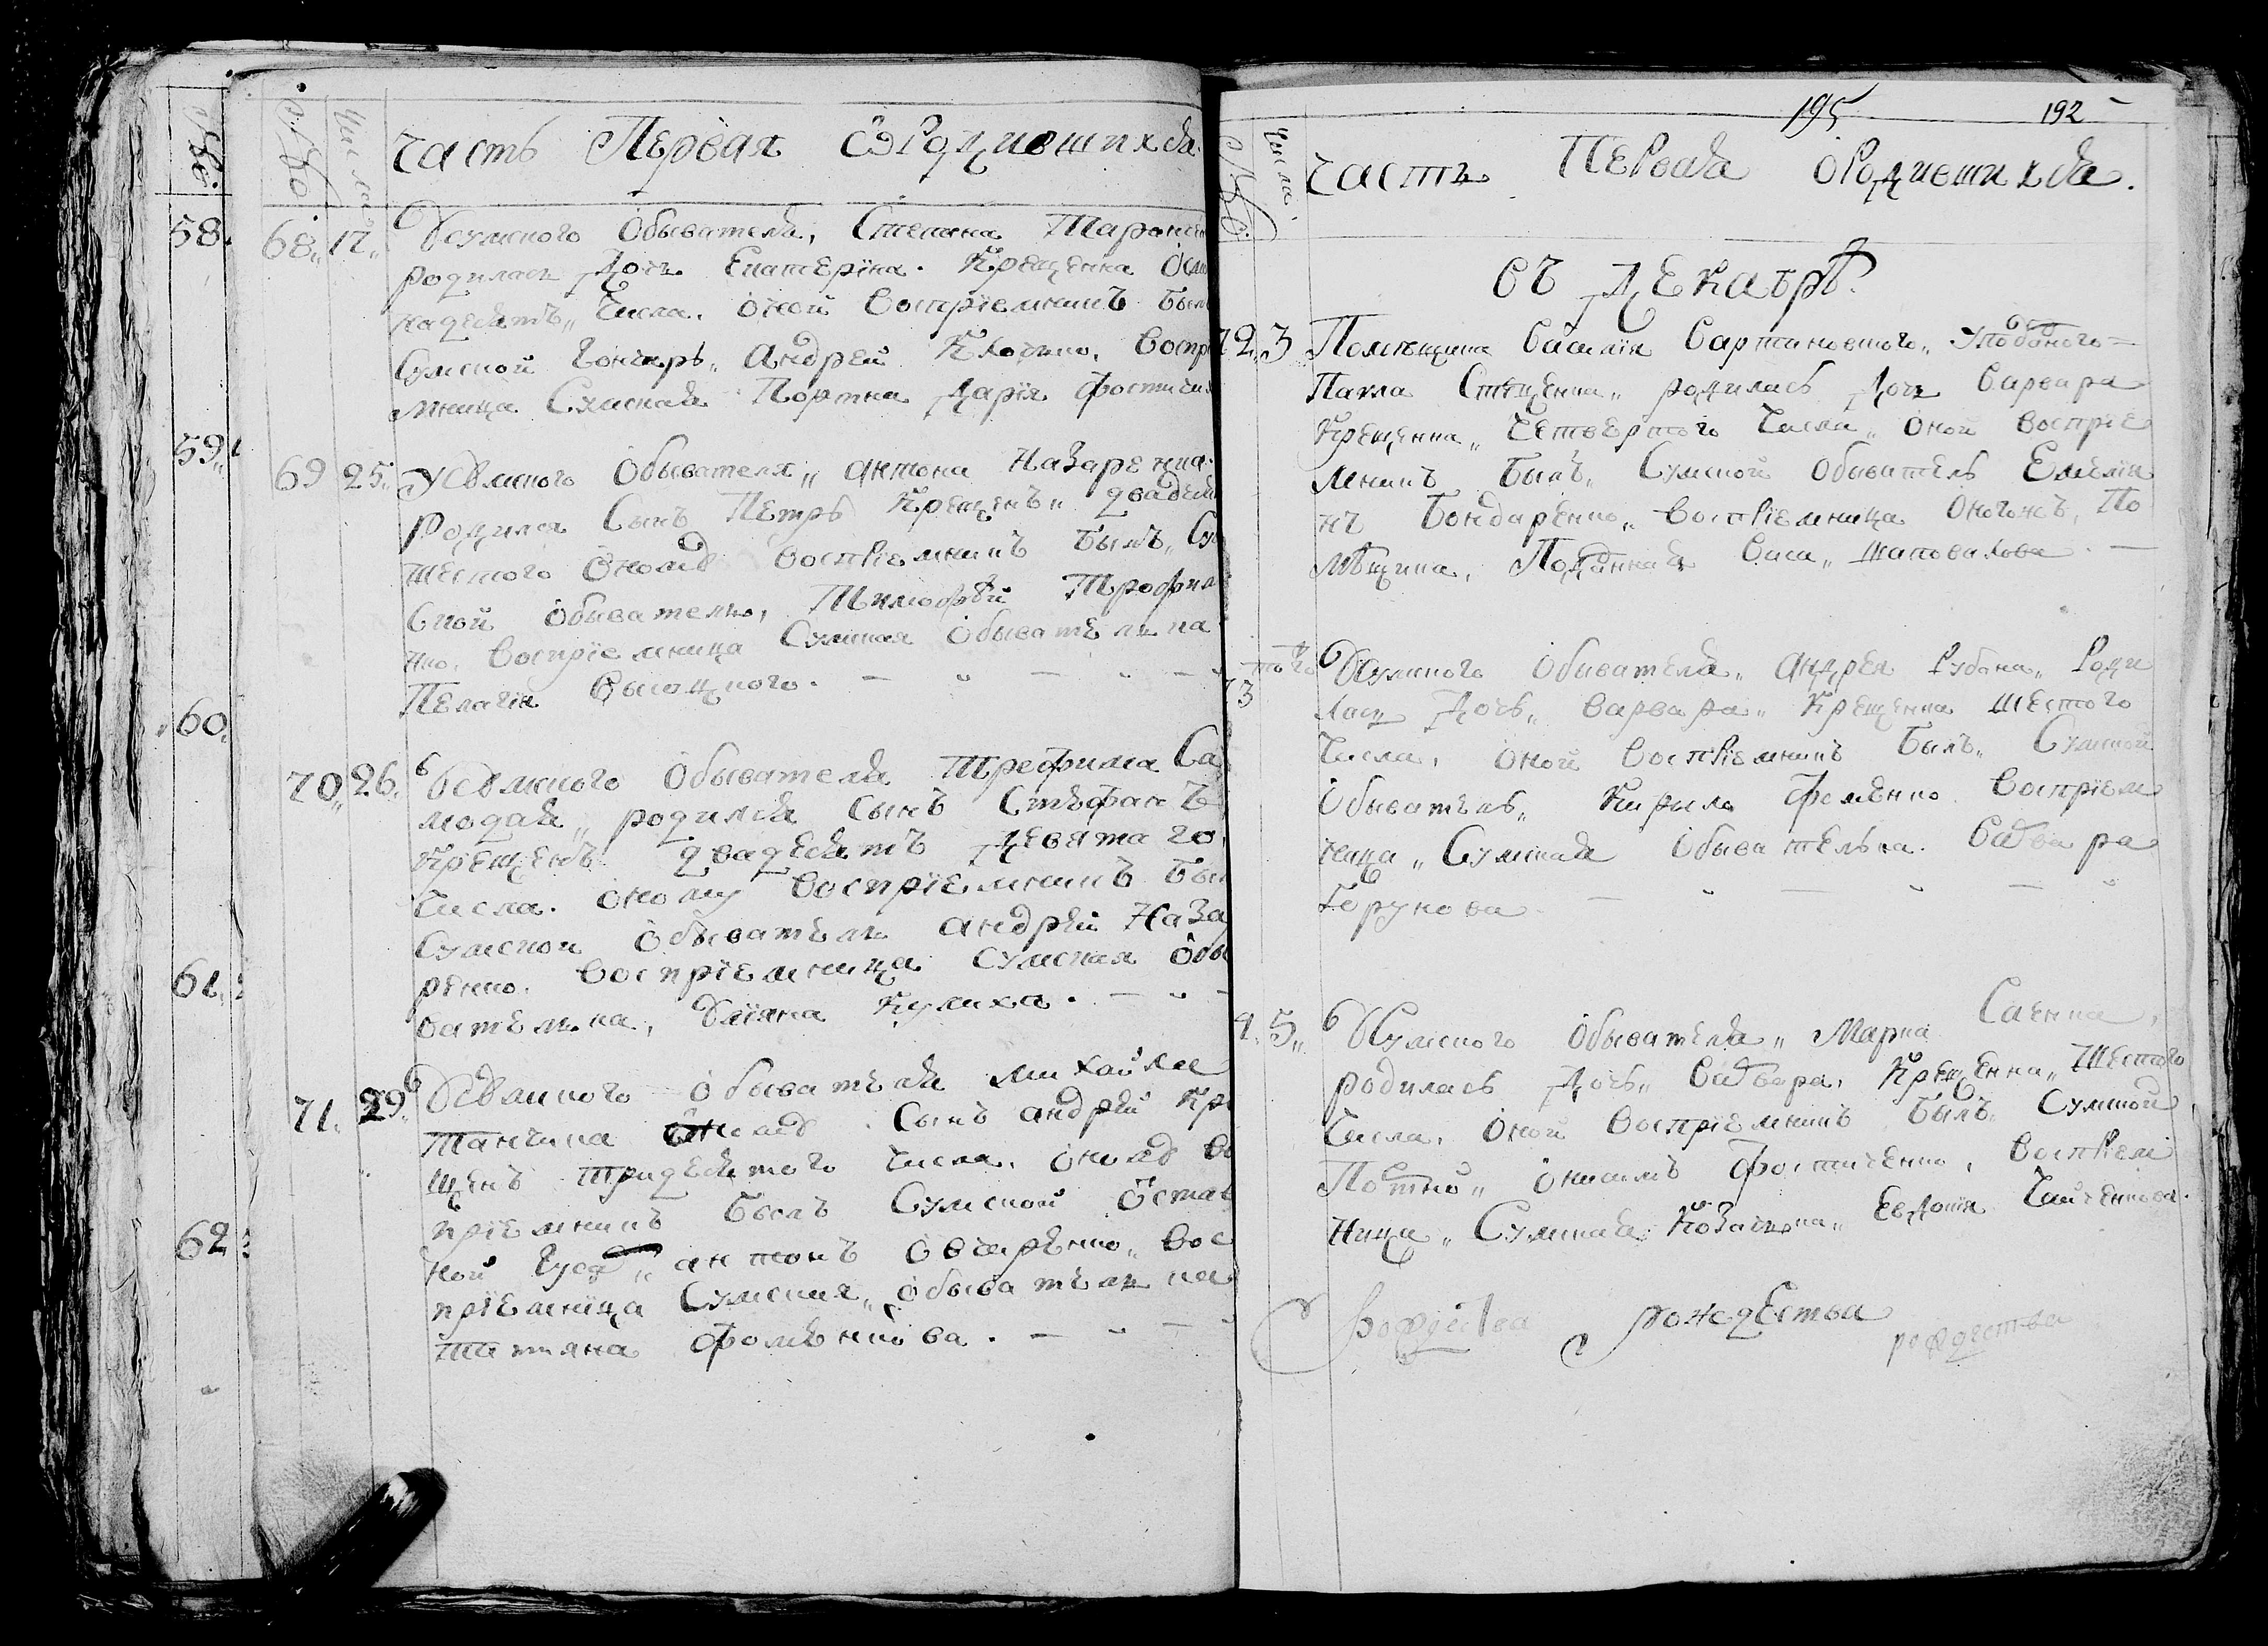 №
58.
59.
60.
61.
62.
№ Числа
часть Первая ѡ Родившихся.
68. 17. Усумского Обывателя, Степана
родилась Дочь Екатерїна. Крещенна Осм
надесять, Числа, Оной Воспрїемникъ был
Сумской Гончарь, Андрей Воспр
мница Сумская Портна Дарїя
69 25. Усумского Обывателя, антона Назаренка
Родился Сынъ Петръ Крещенъ,
шестого Оному воспрїемникъ былъ, Су
ской обыватель, Тимофѣй Трофим
ко, Воспрїемница Сумская Обыватель ка
Пелагїя Высоцкого. —
70. 26. Усумского Обывателя Трефима Са
модая, родился сынъ Стефанъ
Крещенъ двадесять Девята го,
Числа. оному воспрїемникъ бы
Сумской Обыватель андрей Наза
ренко. Воспрїемница Сумская Обы
ватель ка, Улїяна Кулиха. —
71. 29. Усумского обывателя михайла
Танчика оному Сынъ андрей Кре
щенъ тридесятого Числа, оному во
прїемникъ былъ Сумской Остав
ной Гуса, антонъ Овчаренко, вос
прїемница Сумская, обыватель ка
Татияна Фоменкова. —
195 192
№ Числа
часть Первая ѡ Родившихся.
въ Декабрѣ
72. 3 Помѣщика Василїя Вартиновского, уподаного
Павла Стеценка, родилась дочь варвара
Крещенна, Четвертого Числа, Оной воспрїе
мникъ былъ, Сумской Обыватель Емелїа
нъ Бондаренко, воспрїемница Оногожъ, По
мѣщика, Подданная Васа, шаповалова. —
73 того Усумского Обывателя, Андрея Рубана, Роди
лась Дочь, варвара, Крещенна Шестого
Числа, оной воспрїемникъ былъ, Сумской
Обыватель, Кирыло Фоменко Воспрїем
ница, Сумская Обывателька. Варвара
Горунова. —
4. 5. Усумского Обывателя, Марка Саенка,
родилась Дочь, варвара, Крещенна, Шестого
Числа, Оной воспрїемникъ былъ, Сумской
Онисимъ Фостиченко, Воспрїем
ница, Сумская Козачька, Евдокїя
рождества